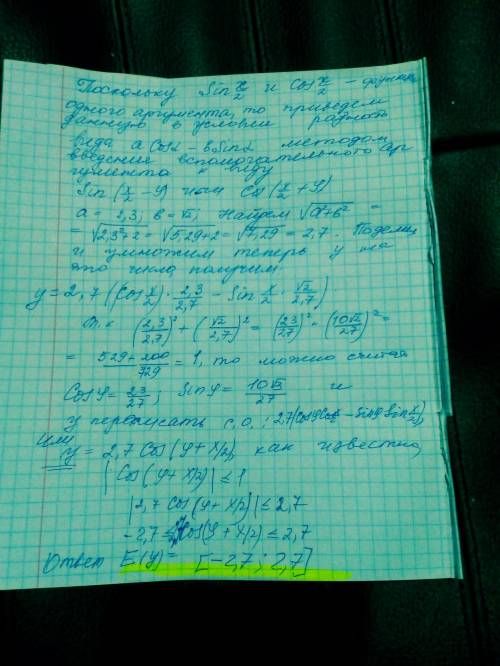 Поскольку Sin x/2 и Cos x/2 – функции
одного аргумента, то приведем
данную в условии разность
вида a Cosα – bSinα методом
введения вспомогательного ар
гумента к виду
Sin(x/2 – φ) или Cos(x/2 + φ)
a = 2,3; b = √2; Найдем √(a²+b²) =
= √(2,3²+2) = √(5,29+2) = √7,29 = 2,7. Поделим
и умножим теперь у на
это число получим.
y = 2,7 (Cos(x/2) · 2,3/2,7 – Sin x/2 · √2/2,7)
т.к (2,3/2,7)² + (√2/2,7)² = (23/27)² + (10√2/27)² =
= (529 + 200)/729 = 1, то можно считать
Cosφ = 23/27; Sinφ = 10√2/27 и
у переписать с.о.: 2,7(CosφCos x/2 – Sinφ Sin(x/2)),
или
y = 2,7 Cos(φ + x/2), как известно,
|Cos(φ + x/2)| ≤ 1
|2,7 Cos(φ + x/2)| ≤ 2,7
-2,7 ≤ Cos(φ + x/2) ≤ 2,7
Ответ E(y) = [-2,7; 2,7]